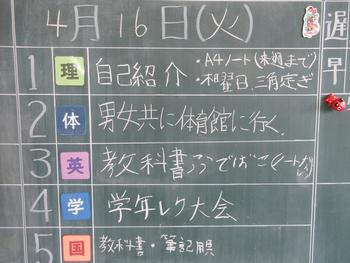 4月16日(火)
遅
早
1 理 自己紹介 ・A4ノート(来週まで)
・木曜日、三角定ぎ
2 体 男女共に体育館に行く。
3 英 教科書
4 学 学年レク大会
5 国 教科書・筆記順